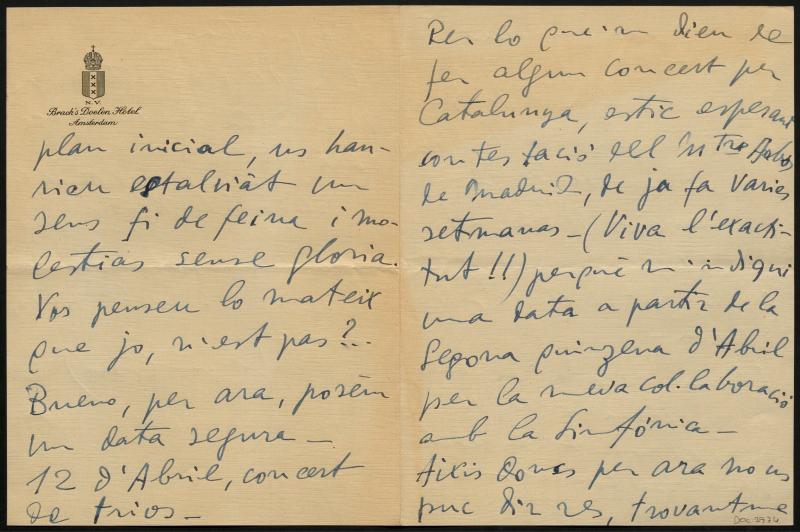 N.V.
Brack's Doelen Hôtel
Amsterdam
plan inicial, us hau-
rieu estalviât un
sens fi de feina i mo-
lestias sense gloria.
Vos penseu lo mateix
que jo, n'est pas?..
Bueno, per ara, posém
un data segura —
12 d'Abril, concert
de trios —
Per lo que'm dieu de
fer algun concert per
Catalunya, estic esperant
contestació del Mtre Arbós
de Madrid, de ja fa varies
setmanas — (Viva l'exacti-
tut!!) perquè m'indiqui
una data a partir de la
segona quinzena d'Abril
per la meva col·laboració
amb la Simfónica —
Aixis doncs per ara no us
puc dir res, trovantme
DOC 3974